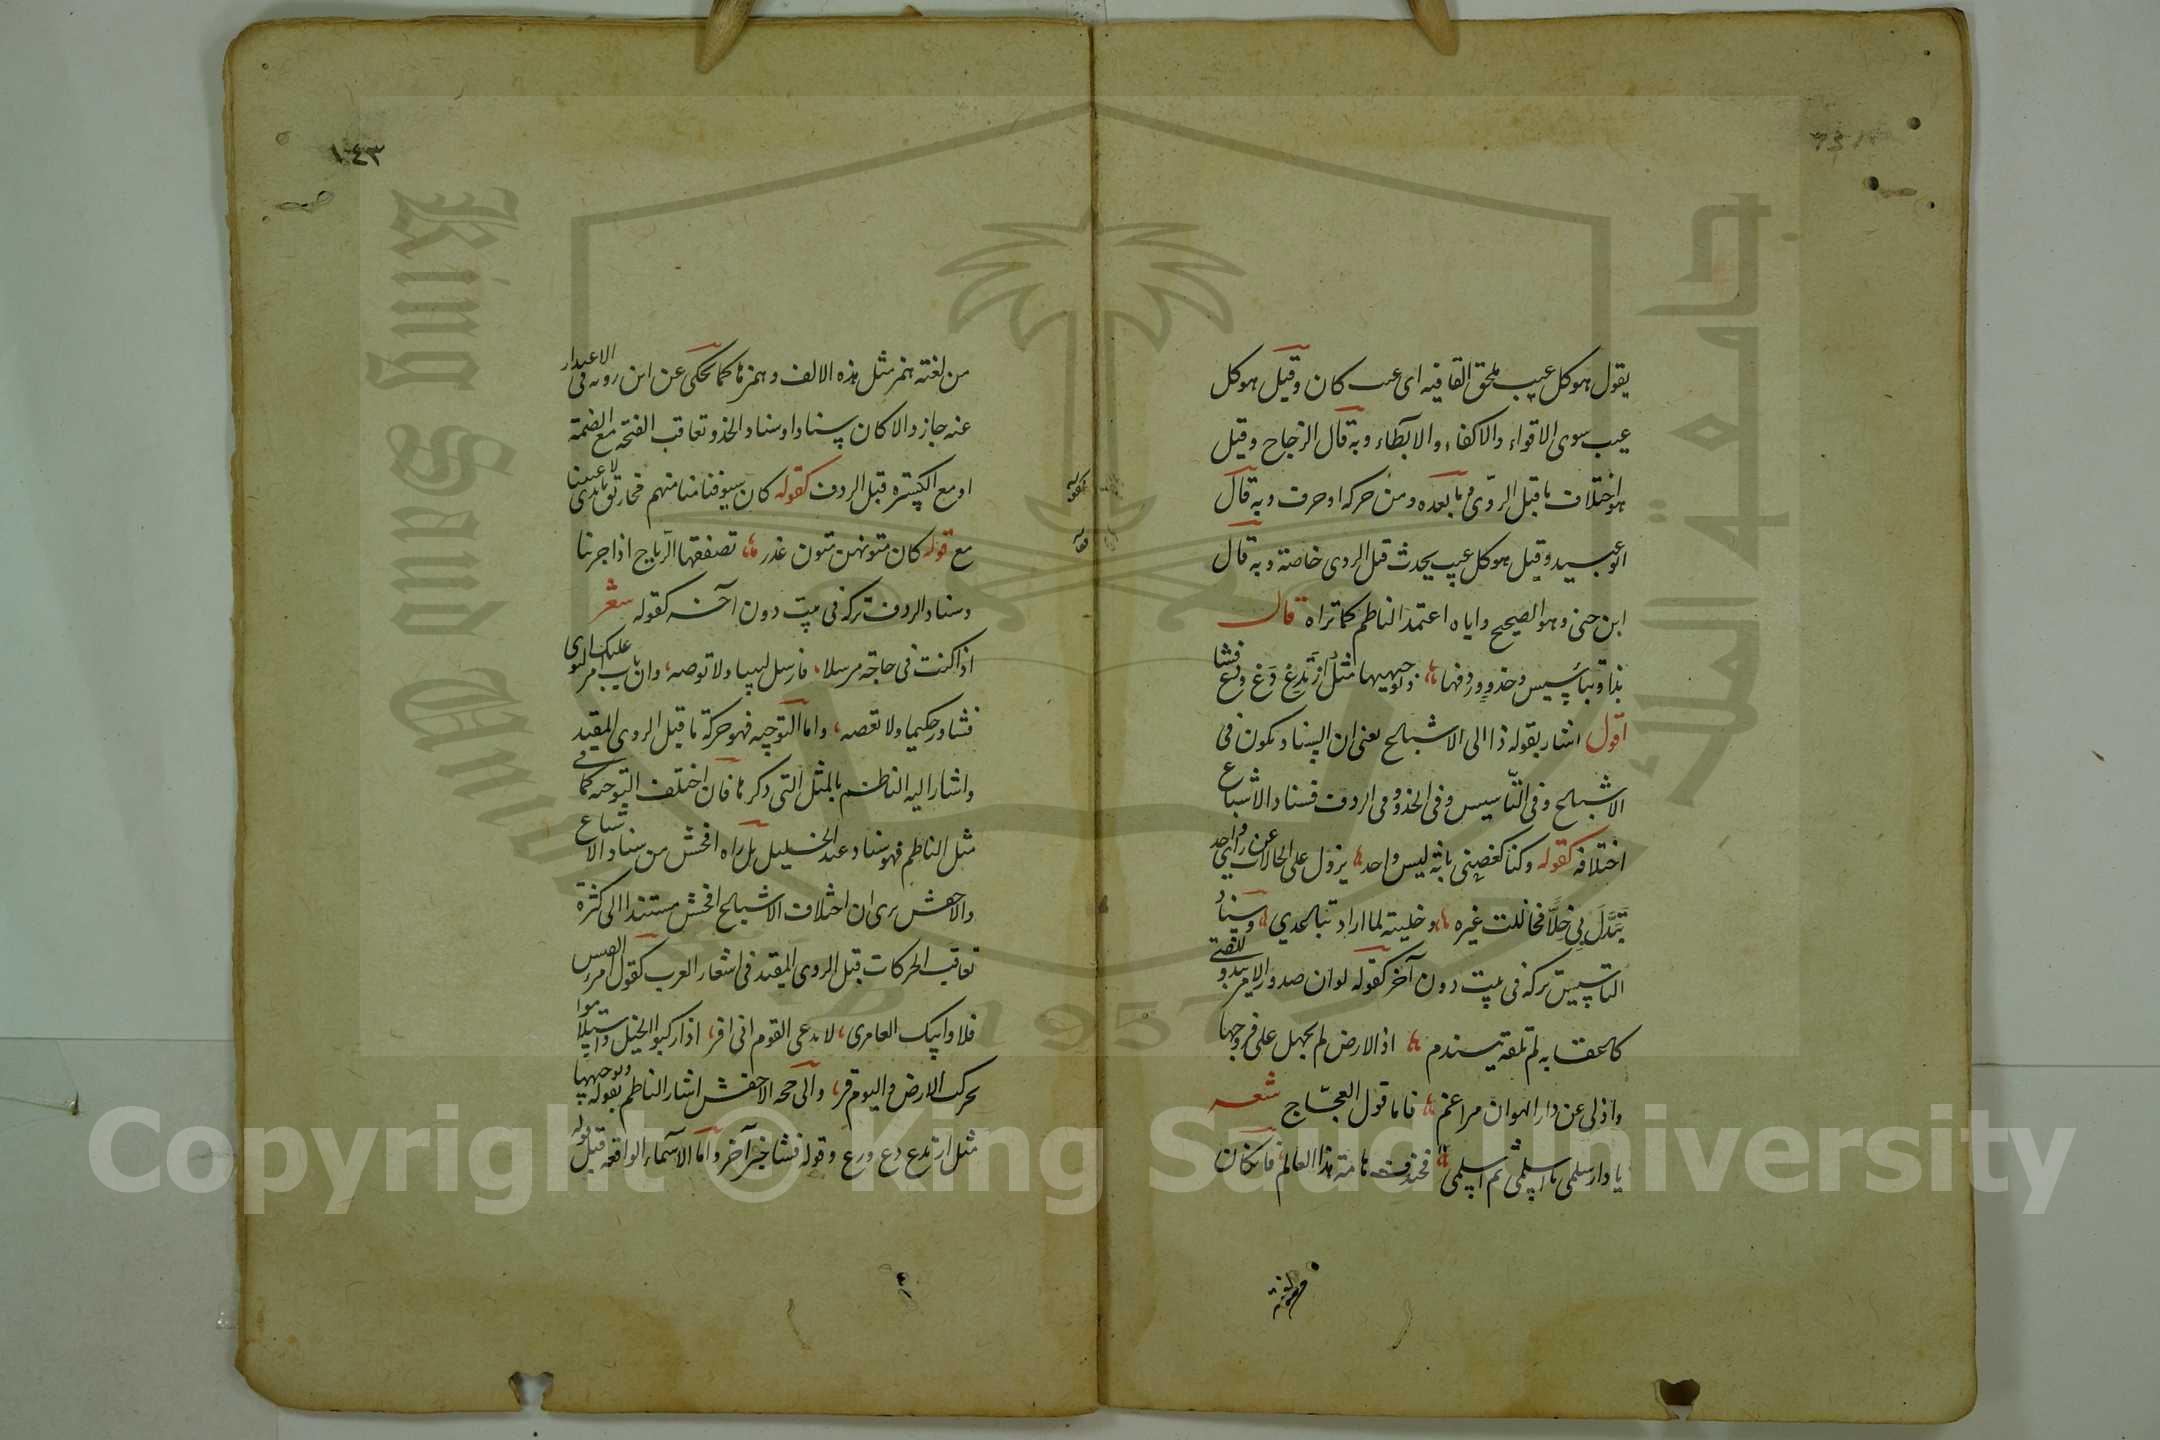 يقول هو كل عيب يلحق القافيه اى عيب كان وقيل هو كل
عيب سوى الاقواء والاكفاء والايطاء وبه قال الزجاج وقيل
هو اختلاف ما قبل الروّى وما بعده ومن حركه او حرف وبه قال
ابو عبيد وقيل هو كل عيب يحدث قبل الروى خاصة وبه قال
ابن جنى وهو الصحيح واياه اعتمد الناظم كما تراه قال
بذا وبتأسيس وحذو وردفها وتوجيهها مثل ارتدع دع ورع فشا
اقول اشار بقوله ذا الى الاشباع يعنى ان السناد يكون فى
الاشباع وفى التّأسيس وفى الحذو وفى الردف فسناد الاشباع
اختلافه كقوله وكنا كغصنى بانة ليس واحد يزول على الحالات عن راى واحد
تبدّل بى خلّا فخاللت غيره وخليته لما اراد تباعدي وسناد
التأسيس تركه فى بيت دون آخر كقوله لو ان صدور الامر يبدو للفتى
كاعقابه لم تلقه يتندم اذ الارض لم تجهل على فروجها
واذ لى عن دار الهوان مراغم فاما قول العجّاج شعر
يا دار سلمى يا اسلمى ثم اسلمى فخندف هامة هذا العالم فان كان
١٤٣
من لغته همز مثل هذه الالف وهمزها كما يحكى عن ابن روبه فى الاعتذار
عنه جاز والا كان سنادا وسناد الحذو تعاقب الفتحه مع الضمة
او مع الكسره قبل الردف كقوله كان سيوفنا منا ومنهم مخاريق بايدى لاعبينا
مع قوله كان متونهن متون غدر تصفقها الرّياح اذا جرينا
وسناد الردف تركه فى بيت دون آخر كقوله شعر
اذا كنت فى حاجة مرسلا فارسل لبيبا ولا توصه وان باب امر عليك التوى
فشاور حكيما ولا تعصه واما التوجيه فهو حركة ما قبل الروى المقيد
واشار اليه الناظم بالمثل التى ذكرها فان اختلف التوجيه كما فى
مثل الناظم فهو سناد عند الخليل بل راه افحش من سناد الاشباع
والاخفش يرى ان اختلاف الاشباع افحش مستندا الى كثرة
تعاقب الحركات قبل الروى المقيد فى اشعار العرب كقول امرى القيس
فلا وابيك العامرى لا يدعى القوم انى افر اذا ركبوا الخيل واستلاموا
تحركت الارض واليوم قر والى حجة الاخفش اشار الناظم بقوله وتوجيهها
مثل ارتدع دع ورع وقوله فشا خبر آخر واما الاسماء الواقعه قبل قوله